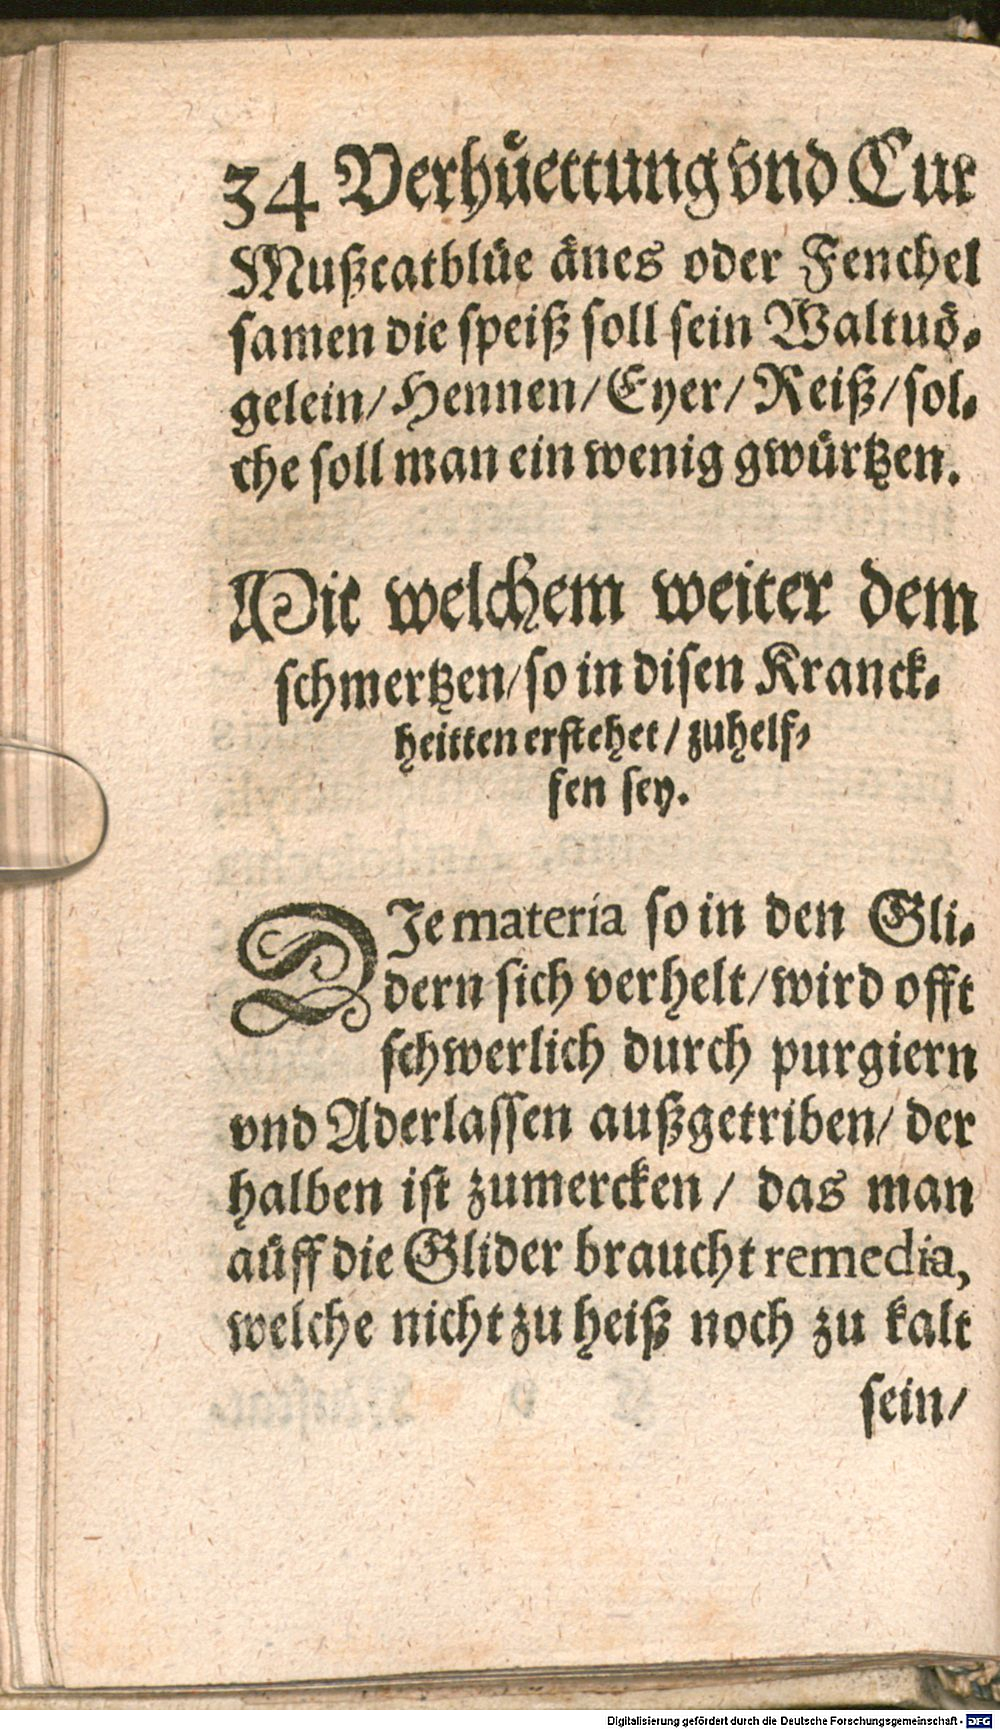 34 Verhuͤettung vnd Cur
Mußcatbluͤe aͤnes oder Fenchel
samen die speiß soll sein Waltuoͤ-
gelein/ Hennen/ Eyer/ Reiß/ sol-
che soll man ein wenig gwuͤrtzen.
Mit welchem weiter dem
schmertzen/ so in disen Kranck-
heitten erstehet/ zuhelf-
fen sey.
DJe materia so in den Gli-
dern sich verhelt/ wird offt
schwerlich durch purgiern
vnd Aderlassen außgetriben/ der
halben ist zumercken/ das man
auͤff die Glider braucht remedia,
welche nicht zu heiß noch zu kalt
sein/
Digitalisierung gefördert durch die Deutsche Forschungsgemeinschaft - DFG